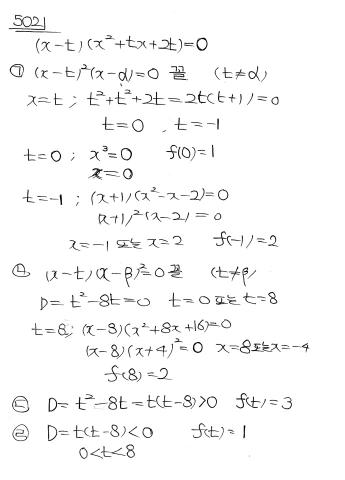 5021
(x-t)(x²+tx+2t)=0
㉠ (x-t)²(x-α)=0 꼴 (t≠α)
x=t ; t²+t²+2t=2t(t+1)=0
t=0 , t=-1
t=0 ; x³=0 f(0)=1
x=0
t=-1 ; (x+1)(x²-x-2)=0
(x+1)²(x-2)=0
x=-1 또는 x=2 f(-1)=2
㉡ (x-t)(x-β)²=0 꼴 (t≠β)
D=t²-8t=0 t=0 또는 t=8
t=8; (x-8)(x²+8x+16)=0
(x-8)(x+4)²=0 x=8또는x=-4
f(8)=2
㉢ D=t²-8t=t(t-8)>0 f(t)=3
㉣ D=t(t-8)<0 f(t)=1
0<t<8